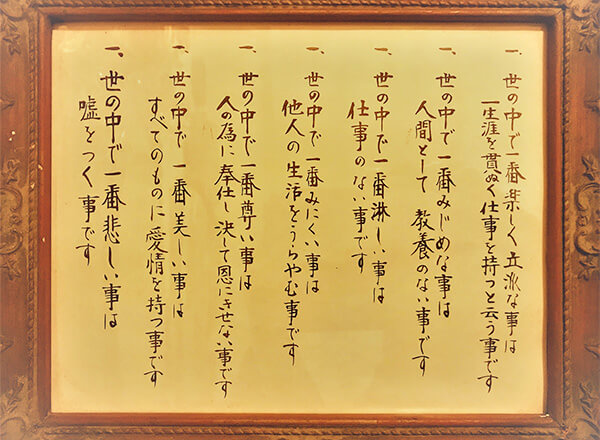 一、世の中で一番楽しく立派な事は
一生涯を貫ぬく仕事を持つと云う事です
一、世の中で一番みじめな事は
人間として教養のない事です
一、世の中で一番淋しい事は
仕事のない事です
一、世の中で一番みにくい事は
他人の生活をうらやむ事です
一、世の中で一番尊い事は
人の為に奉仕し決して恩にきせない事です
一、世の中で一番美しい事は
すべてのものに愛情を持つ事です
一、世の中で一番悲しい事は
嘘をつく事です